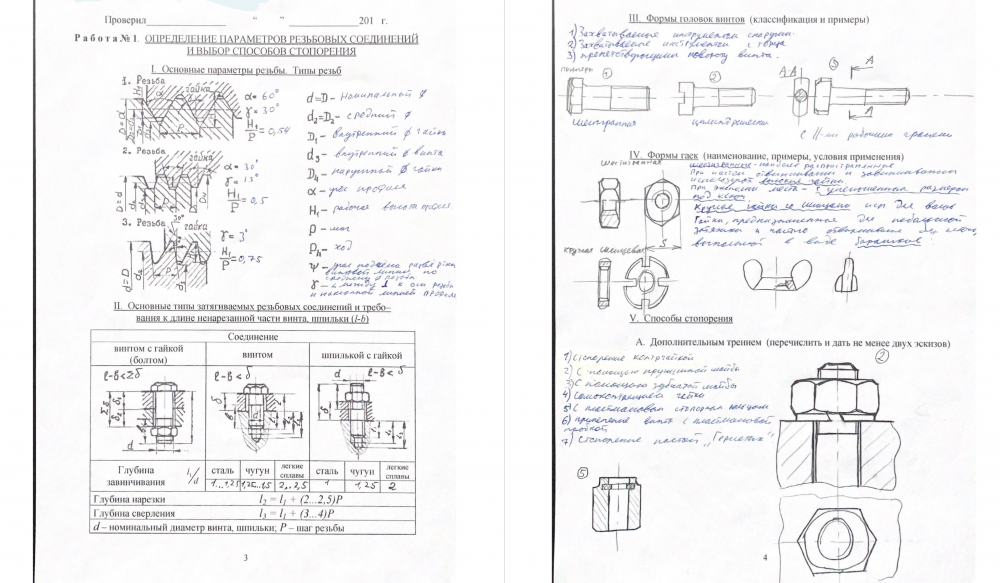 Проверил____________________ “_____” __________________201 г.
Работа № 1. ОПРЕДЕЛЕНИЕ ПАРАМЕТРОВ РЕЗЬБОВЫХ СОЕДИНЕНИЙ
И ВЫБОР СПОСОБОВ СТОПОРЕНИЯ
I. Основные параметры резьбы. Типы резьб
1. Резьба
гайка
α = 60°
γ = 30°
H₁/P = 0,54
2. Резьба
гайка
α = 30°
γ = 15°
H₁/P = 0,5
3. Резьба
30°
гайка
γ = 3°
H₁/P = 0,75
d=D – номинальный ϕ
d₂=D₂ – средний ϕ
D₁ – внутренний ϕ гайки
d₃ – внутренний ϕ винта
D₄ – наружный ϕ гайки
α – угол профиля
H₁ – рабочая высота профиля
P – шаг
Pₕ – ход
ψ – угол подъема
винтовой линии, по
γ – ∠ между ⊥ к оси резьбы
и наклонной линией профиля
II. Основные типы затягиваемых резьбовых соединений и требо–
вания к длине ненарезанной части винта, шпильки (l-b)
Соединение
винтом с гайкой
(болтом)
винтом
шпилькой с гайкой
l-b<Σδ
l-b<δ
l-b<δ
Глубина
завинчивания
l₁/d
сталь
чугун
легкие
сплавы
сталь
чугун
легкие
сплавы
1...1,25
1,25...1,5
2...2,5
1
1,25
2
Глубина нарезки l₂ = l₁ + (2...2,5)P
Глубина сверления l₃ = l₁ + (3...4)P
d – номинальный диаметр винта, шпильки; P – шаг резьбы
3
III. Формы головок винтов (классификация и примеры)
1) Захватываемые инструментом снаружи.
2) Захватываемые инструментом с торца
3) препятствующими повороту винта.
примеры
1
2
А-А
3
А
А
шестигранная
цилиндрическая
с II-ми рабочими гранями
IV. Формы гаек (наименование, примеры, условия применения)
шестигранная
шестигранные - наиболее распространенные
При частом отвинчивании и завинчивании
используют высокие гайки
При экономии места - с уменьшенным размером
под ключ.
Круглые гайки со шлицами исп. для валов
Гайки, предназначенные для небольшой
затяжки и частого отвинчивания без ключа,
выполняют в виде барашков.
S
круглая шлицевая
V. Способы стопорения
А. Дополнительным трением (перечислить и дать не менее двух эскизов)
1) Стопорение контргайкой
2) С помощью пружинной шайбы
3) С помощью зубчатой шайбы
4) Самоконтрящиеся гайки
5) С пластмассовым стопорным кольцом
6) применение винта с пластмассовой
пробкой
7) Стопорение пастой „Герметик“
2
5
4